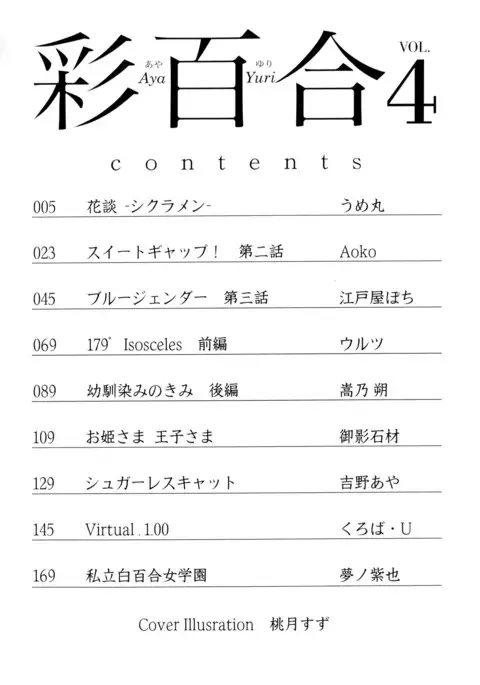 彩百合 VOL. 4
あや ゆり
Aya Yuri
contents
005 花談 -シクラメン- うめ丸
023 スイートギャップ! 第二話 Aoko
045 ブルージェンダー 第三話 江戸屋ぽち
069 179° Isosceles 前編 ウルツ
089 幼馴染みのきみ 後編 嵩乃 朔
109 お姫さま 王子さま 御影石材
129 シュガーレスキャット 吉野あや
145 Virtual . 1.00 くろば・U
169 私立白百合女学園 夢ノ紫也
Cover Illusration 桃月すず